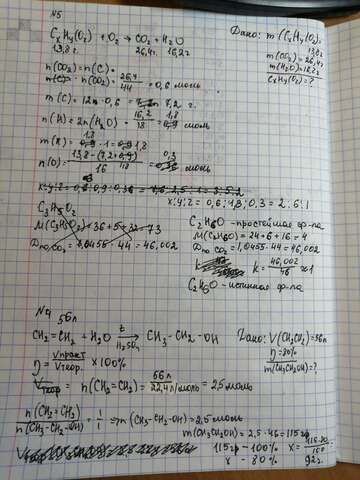 №5
CxHy(Oz) + O2 → CO2 + H2O
13,8г. 26,4г. 16,2г
Дано: m(CxHyOz)=13,8г
m(CO2)=26,4г
m(H2O)=16,2г
CxHy(Oz)=?
n(CO2)=n(C)=
n(CO2)=26,4/44=0,6 моль
m(C)=12·0,6=7,2г.
n(H)=2n(H2O)=16,2/18=1,8 моль
m(H)=1,8·1=1,8
n(O)=13,8-(7,2+1,8)/16=0,3 моль
x:y:z=0,6:1,8:0,3=2:6:1
C3H5O2
M(C3H5O2)=36+5+32=73
Dпо CO2=1,0455·44=46,002
C2H6O - простейшая ф-ла
M(C2H6O)=24+6+16=46
Dпо CO2=1,0455·44=46,002
k=46,002/46≈1
C2H6O - истинная ф-ла
№4
56л
CH2=CH2 + H2O t→ H2SO4 CH3-CH2-OH
Дано: V(CH2CH2)=56л
η=80%
m(CH3CH2OH)=?
η=Vпракт/Vтеор. ×100%
n(CH2=CH2)=56л/22,4л/моль=2,5моль
n(CH2=CH2)/n(CH3-CH2-OH)=1/1 ⇒ n(CH3-CH2-OH)=2,5моль
m(CH3CH2OH)=2,5·46=115гр
115гр-100% x=115·80/100
x - 80% 92г.